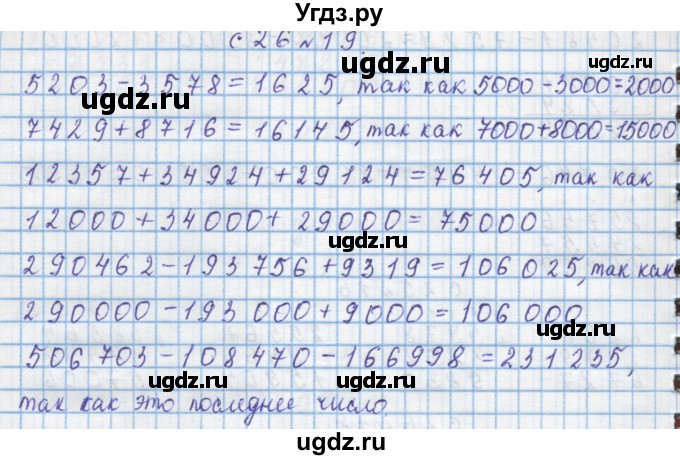 Угдз.ру
с 26 № 19.
5203-3578=1625, так как 5000-3000=2000
7429+8716=16145, так как 7000+8000=15000
12357+34924+29124=76405, так как
12000+34000+29000=75000
290462-193756+9319=106025, так как
290000-193000+9000=106000
506703-108470-166998=231235,
так как это последнее число.
ugdz.ru
ugdz.ru
ugdz.ru
ugdz.ru
ugdz.ru
ugdz.ru
ugdz.ru
ugdz.ru
ugdz.ru
ugdz.ru